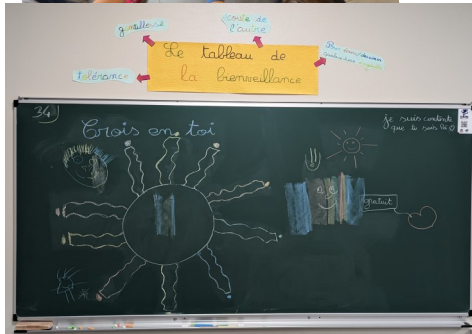 gentillesse
écoute de
l'autre
Le tableau de
la bienveillance
tolérance
34
Crois en toi
je suis contente
que tu sois là
gratuit